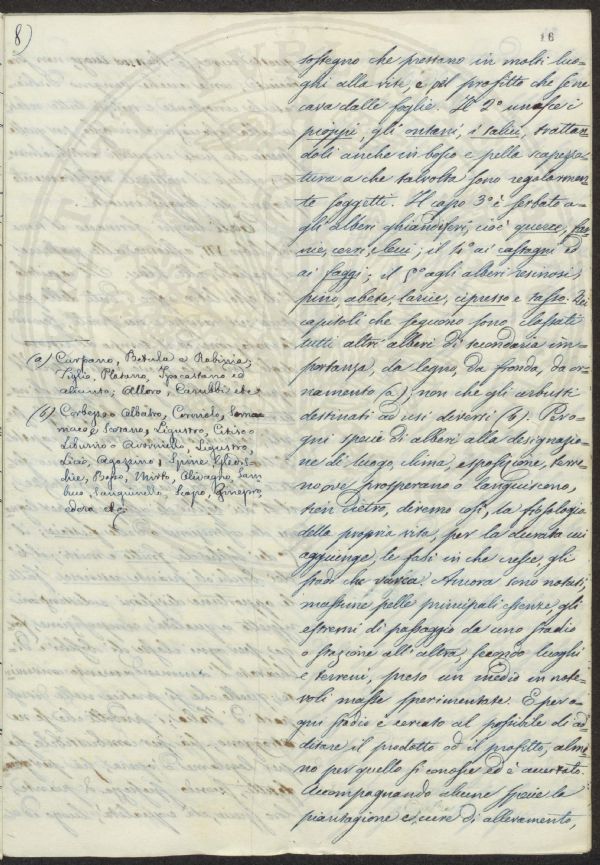 8)
16
sostegno che prestano in molti luo-
ghi alla vite, e pel profitto che se ne
cava dalle foglie. Il 2° unisce i
pioppi, gli ontani, i salici, trattan
doli anche in bosco e pella scapezza
tura a che talvolta sono regolarmen
te soggetti. Il capo 3° è serbato a-
gli alberi ghiandiferi, cioè querce, far
nie, cerri, elleci; il 4° ai castagni ed
ai faggi; il 5° agli alberi resinosi
pino abete, larice, cipresso e tasso. Nei
capitoli che seguono sono classati
tutti altri alberi di secondaria im-
portanza, da legno, da fronda, da or-
namento (a); non che gli arbusti
destinati ad usi diversi (b). Per o-
gni specie di alberi alla designazio-
ne di luogo, clima, esposizione, terre-
no ove prosperano o languiscono,
tien dietro, diremo così, la fisiologia
della propria vita, per la durata cui
aggiunge, le fasi in che cresce, gli
stadi che varca. Ancora sono notati,
massime pelle principali essenze, gli
estremi di passaggio da uno stadio
o stazione all'altra, secondo luoghi
e terreni, preso un medio in note-
voli masse sperimentate. E per o-
gni stadio è cercato al possibile di ad-
ditare il prodotto od il profitto, alme
no per quello si conosce ed è accertato.
Accompagnando alcune specie la
piantagione e cure di allevamento,
(a) Carpano, Betula e Robinia;
Tiglio, Platano, Ipocastano ed
ailanto; Alloro, Carubbi etc
(b) Corbezzo o Albatro, Corniolo,
Ligustro, Citiso o
Liburno o Avorniello, Ligustro,
Spine
Bosso, Mirto, Olivagno, Sam
buco, Sanguinello, Ginepro,
edera etc